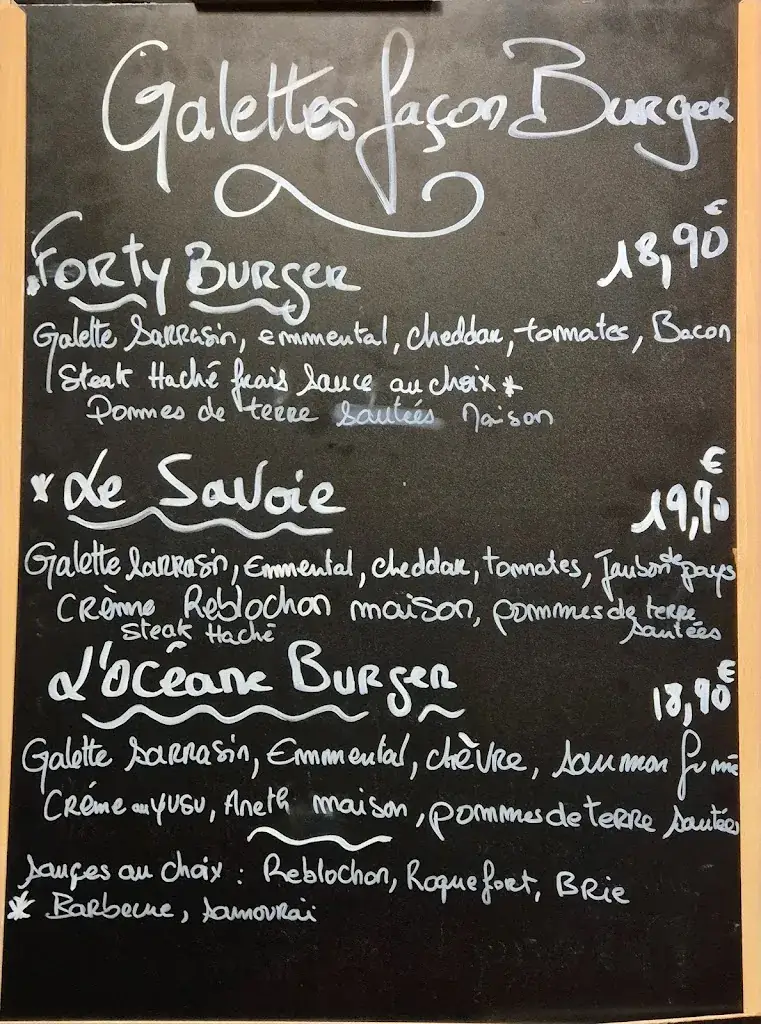 Galettes façon Burger
Forty Burger 18,90€
Galette Sarrasin, emmental, cheddar, tomates, Bacon
Steak Haché frais Sauce au choix *
Pommes de terre sautées Maison
* Le Savoie 19,90€
Galette Sarrasin, Emmental, cheddar, tomates, Jambon de pays
Crème Reblochon maison, pommes de terre sautées
Steak Haché
L'Océane Burger 18,90€
Galette Sarrasin, Emmental, chèvre, Saumon fumé
Crème au YUSU, Aneth maison, pommes de terre sautées
Sauces au choix : Reblochon, Roquefort, BRIE
* Barbecue, Samouraï